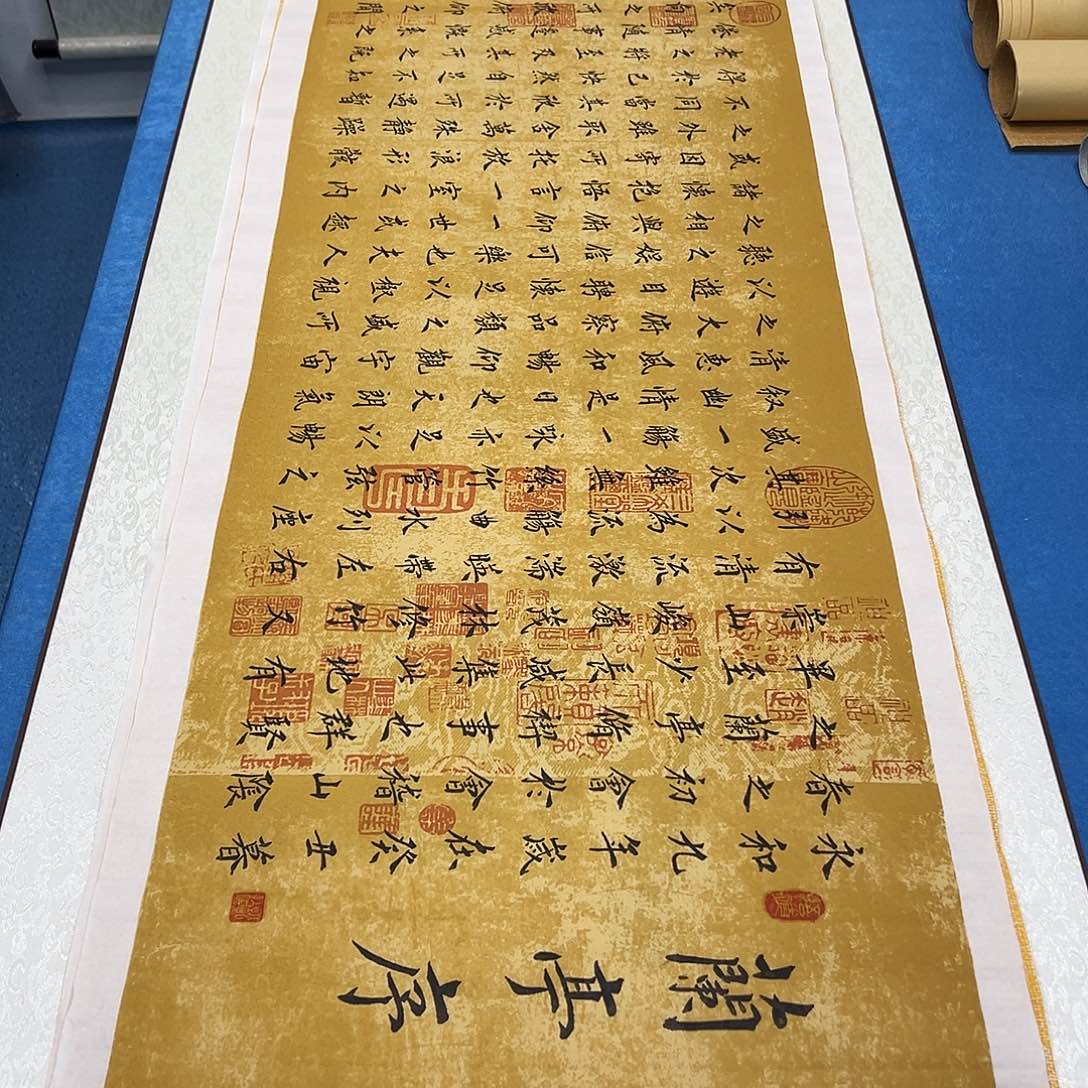 蘭亭序
永和九年歲在癸丑暮
春之初會於會稽山陰
之蘭亭脩禊事也群賢
畢至少長咸集此地有
崇山峻嶺茂林修竹又
有清流激湍暎帶左右
引以為流觴曲水列座
其次雖無絲竹管弦之
盛一觴一詠亦足以暢
叙幽情是日也天朗氣
清惠風和暢仰觀宇宙
之大俯察品類之盛所
以遊目騁懷足以極視
聽之娛信可樂也夫人
之相與俯仰一世或
諸懷抱悟言一室之內
或因寄所託放浪形骸
之外雖趣舍萬殊靜躁
不同當其欣於所遇暫
得於己快然自足不知
老之將至及其所之既
倦情隨事遷感慨係之